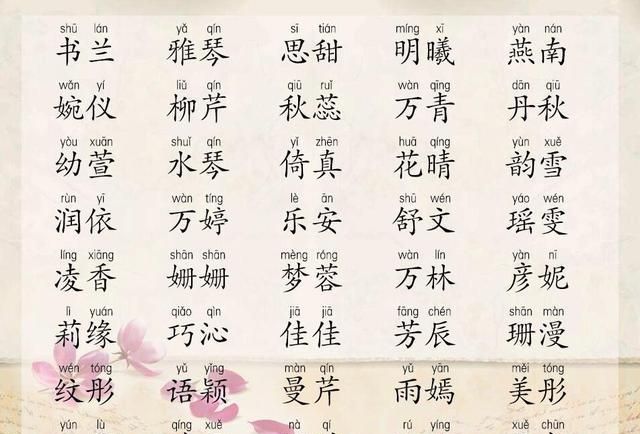 shū lán yǎ qín sī tián míng xī yàn nán
书兰 雅琴 思甜 明曦 燕南
wǎn yí liǔ qín qiū ruǐ wàn qīng dān qiū
婉仪 柳芹 秋蕊 万青 丹秋
yòu xuān shuǐ qín yǐ zhēn huā qíng yùn xuě
幼萱 水琴 倚真 花晴 韵雪
rùn yī wàn tíng lè ān shū wén yáo wén
润依 万婷 乐安 舒文 瑶雯
líng xiāng shān shān mèng róng wàn lín yàn nī
凌香 姗姗 梦蓉 万林 彦妮
lì yuán qiǎo qìn jiā jiā fāng chén shān màn
莉缘 巧沁 佳佳 芳辰 珊漫
wén tóng yǔ yǐng màn qín yǔ yān měi tóng
纹彤 语颖 曼芹 雨嫣 美彤
yún lù qíng xuě nà qí rú yíng xuě chūn